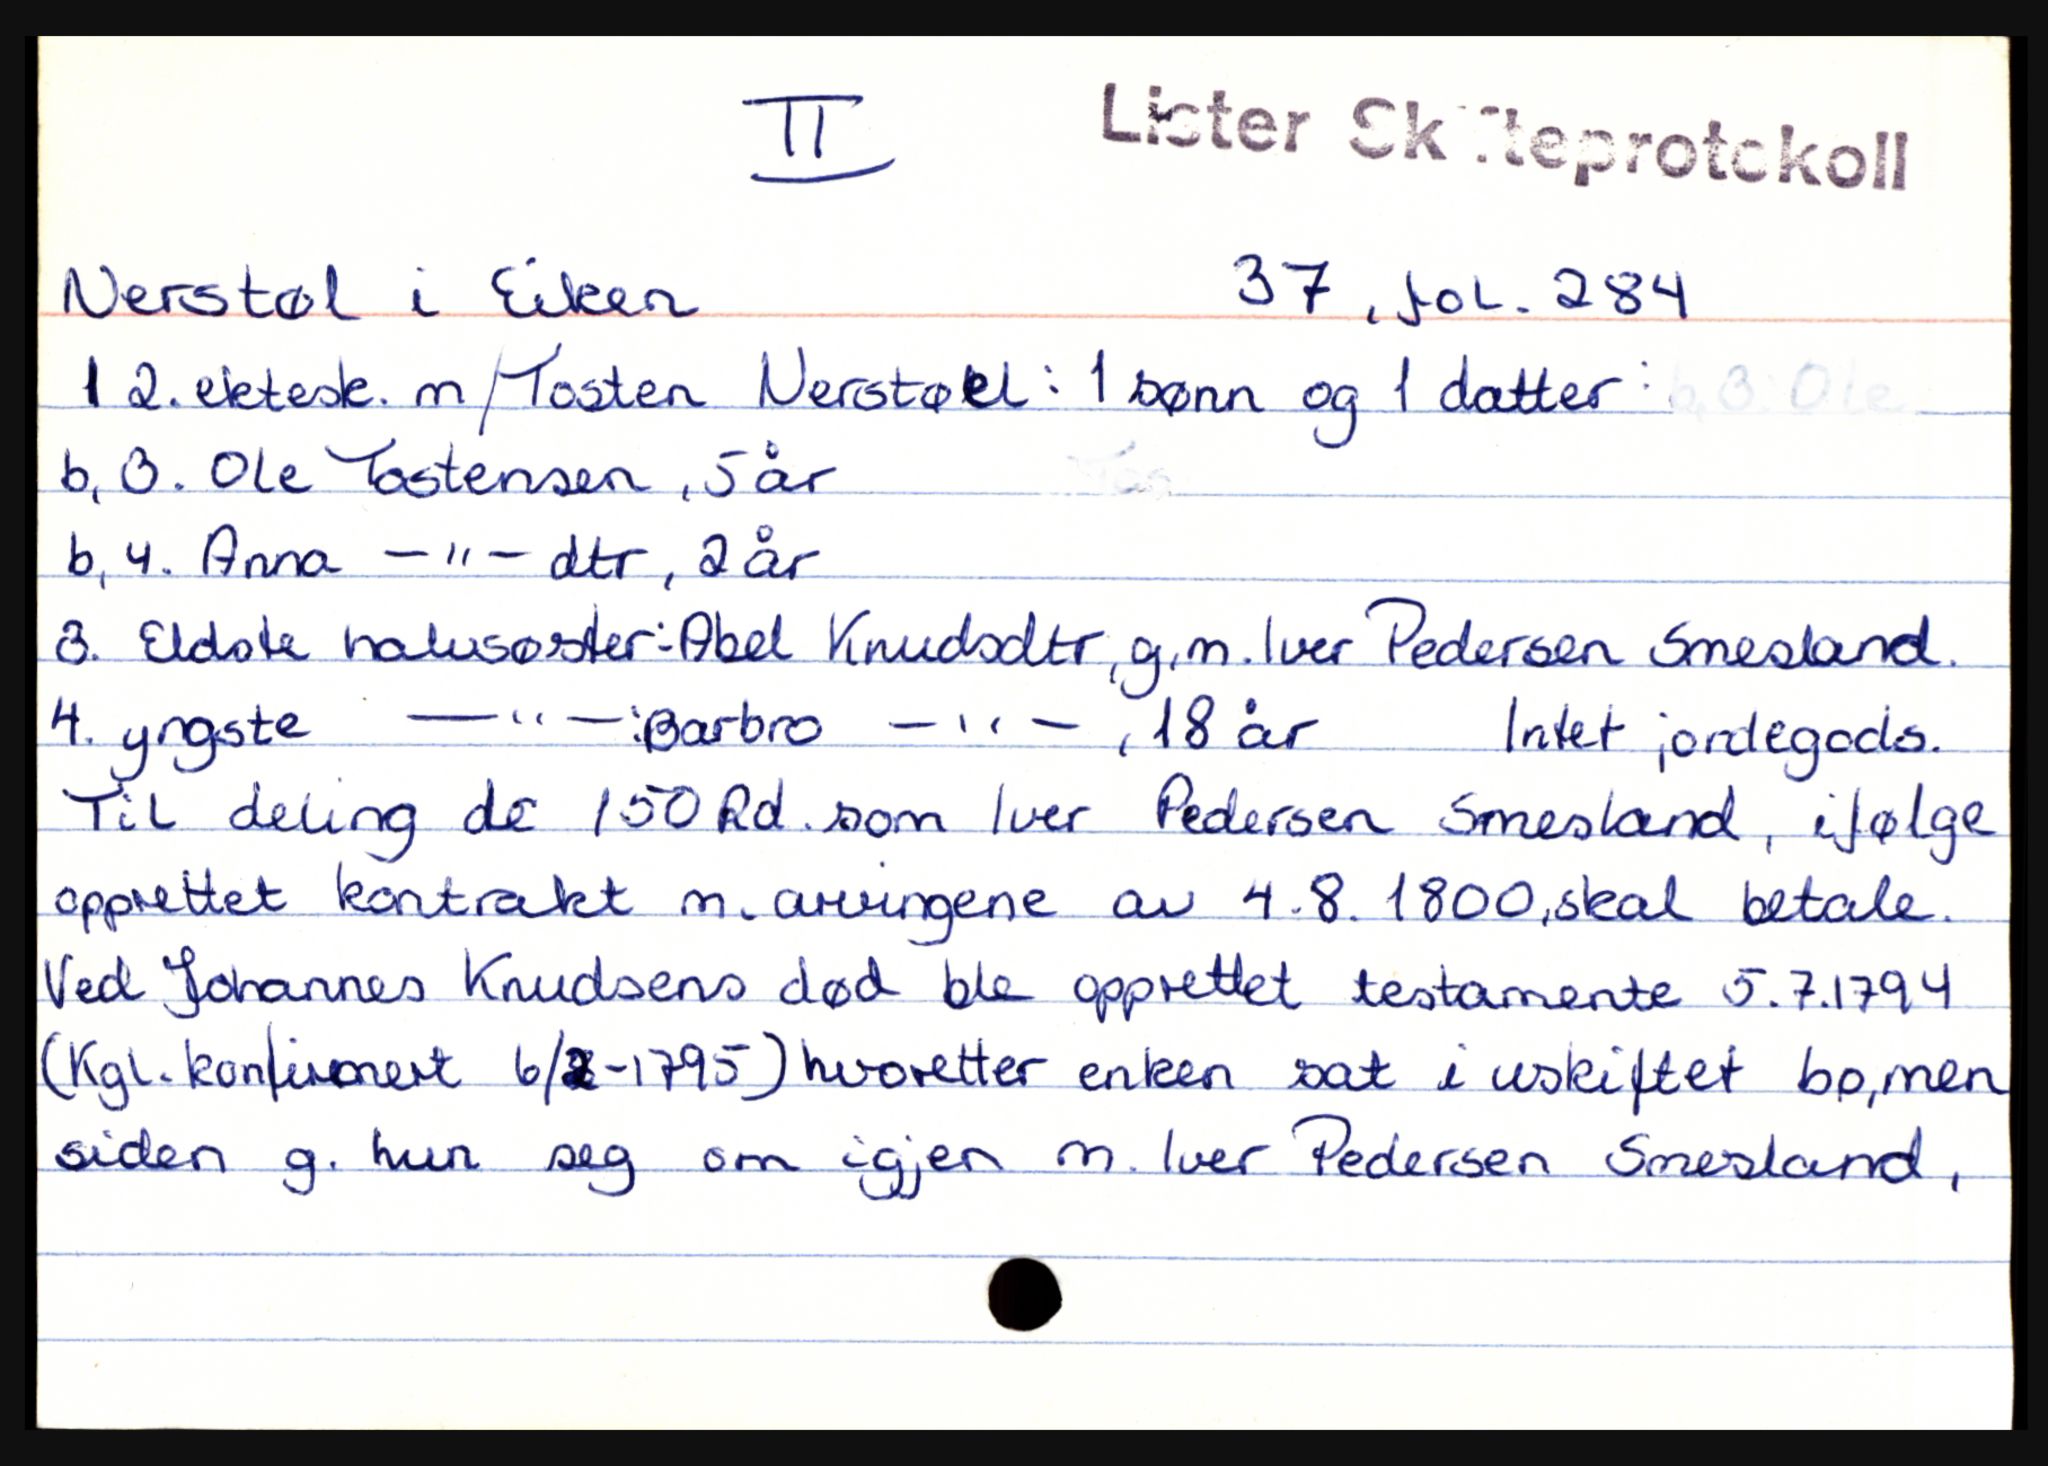 II
Lister Skifteprotokoll
Nerstøl i Eiken 37, fol. 284
I 2. ektesk. m/Tosten Nerstøel: 1 sønn og 1 datter:
b, 3. Ole Tostensen, 5 år
b, 4. Anna —"— dtr, 2 år
3. Eldste halvsøster: Abel Knudsdtr, g.m. Iver Pedersen Smesland.
4. yngste —"—: Barbro —"—, 18 år Intet jordegods.
Til deling de 150 Rd. som Iver Pedersen Smesland, ifølge
opprettet kontrakt m. arvingene av 4.8.1800, skal betale.
Ved Johannes Knudsens død ble opprettet testamente 5.7.1794
(Kgl. konfirmert 6/2-1795) hvoretter enken sat i uskiftet bo, men
siden g. hun seg om igjen m. Iver Pedersen Smesland,